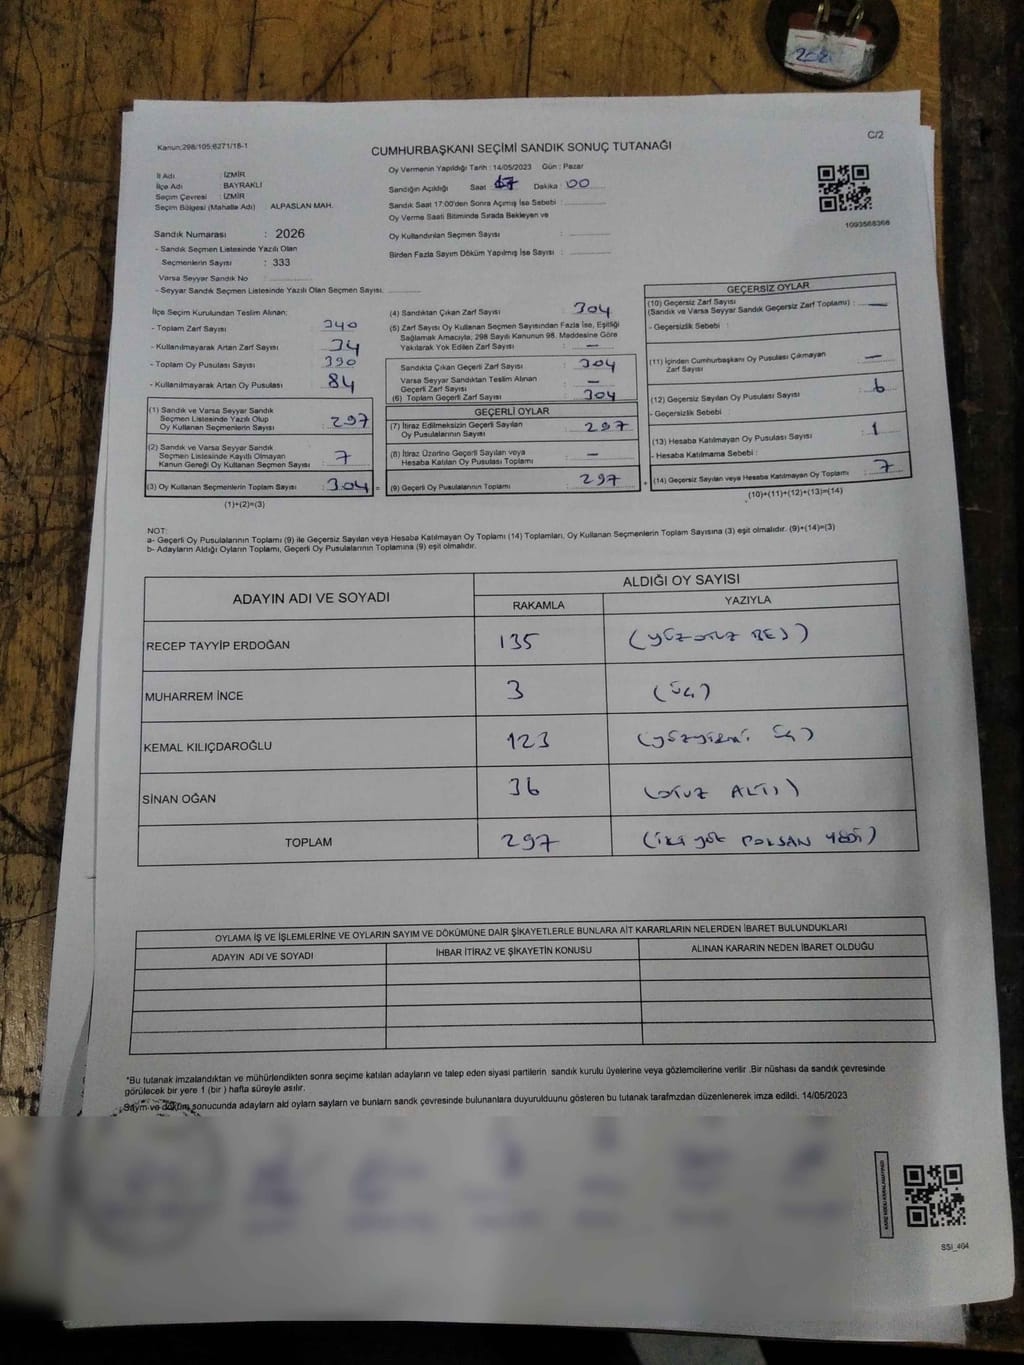 252
C/2
Kanun:298/105;6271/18-1
CUMHURBAŞKANI SEÇİMİ SANDIK SONUÇ TUTANAĞI
Oy Vermenin Yapıldığı Tarih : 14/05/2023 Gün : Pazar
İl Adı : İZMİR
İlçe Adı : BAYRAKLI
Seçim Çevresi : İZMİR
Seçim Bölgesi (Mahalle Adı) : ALPASLAN MAH.
Sandığın Açıldığı Saat 17 Dakika : 00
Sandık Saat 17:00'den Sonra Açımış İse Sebebi :
Oy Verme Saati Bitiminde Sırada Bekleyen ve
Oy Kullandırılan Seçmen Sayısı :
Birden Fazla Sayım Döküm Yapılmış İse Sayısı :
1093568366
Sandık Numarası : 2026
- Sandık Seçmen Listesinde Yazılı Olan
Seçmenlerin Sayısı : 333
Varsa Seyyar Sandık No
- Seyyar Sandık Seçmen Listesinde Yazılı Olan Seçmen Sayısı:
İlçe Seçim Kurulundan Teslim Alınan;
- Toplam Zarf Sayısı : 340
- Kullanılmayarak Artan Zarf Sayısı : 34
- Toplam Oy Pusulası Sayısı : 390
- Kullanılmayarak Artan Oy Pusulası : 84
(1) Sandık ve Varsa Seyyar Sandık
Seçmen Listesinde Yazılı Olup
Oy Kullanan Seçmenlerin Sayısı : 297
(2) Sandık ve Varsa Seyyar Sandık
Seçmen Listesinde Kayıtlı Olmayan
Kanun Gereği Oy Kullanan Seçmen Sayısı : 7
(3) Oy Kullanan Seçmenlerin Toplam Sayısı : 304 =
(1)+(2)=(3)
(4) Sandıktan Çıkan Zarf Sayısı : 304
(5) Zarf Sayısı Oy Kullanan Seçmen Sayısından Fazla İse, Eşitliği
Sağlamak Amacıyla; 298 Sayılı Kanunun 98. Maddesine Göre
Yakılarak Yok Edilen Zarf Sayısı : —
Sandıkta Çıkan Geçerli Zarf Sayısı : 304
Varsa Seyyar Sandıktan Teslim Alınan
Geçerli Zarf Sayısı : —
(6) Toplam Geçerli Zarf Sayısı : 304
GEÇERLİ OYLAR
(7) İtiraz Edilmeksizin Geçerli Sayılan
Oy Pusulalarının Sayısı : 297
(8) İtiraz Üzerine Geçerli Sayılan veya
Hesaba Katılan Oy Pusulası Toplamı : —
(9) Geçerli Oy Pusulalarının Toplamı : 297 +
GEÇERSİZ OYLAR
(10) Geçersiz Zarf Sayısı
(Sandık ve Varsa Seyyar Sandık Geçersiz Zarf Toplamı) : —
- Geçersizlik Sebebi :
(11) İçinden Cumhurbaşkanı Oy Pusulası Çıkmayan
Zarf Sayısı : —
(12) Geçersiz Sayılan Oy Pusulası Sayısı : 6
- Geçersizlik Sebebi :
(13) Hesaba Katılmayan Oy Pusulası Sayısı : 1
- Hesaba Katılmama Sebebi :
(14) Geçersiz Sayılan veya Hesaba Katılmayan Oy Toplamı : 7
(10)+(11)+(12)+(13)=(14)
NOT:
a- Geçerli Oy Pusulalarının Toplamı (9) ile Geçersiz Sayılan veya Hesaba Katılmayan Oy Toplamı (14) Toplamları, Oy Kullanan Seçmenlerin Toplam Sayısına (3) eşit olmalıdır. (9)+(14)=(3)
b- Adayların Aldığı Oyların Toplamı, Geçerli Oy Pusulalarının Toplamına (9) eşit olmalıdır.
ADAYIN ADI VE SOYADI
ALDIĞI OY SAYISI
RAKAMLA YAZIYLA
RECEP TAYYİP ERDOĞAN 135 (YÜZ OTUZ BEŞ)
MUHARREM İNCE 3 (ÜÇ)
KEMAL KILIÇDAROĞLU 123 (yüzyirmi üç)
SİNAN OĞAN 36 (OTUZ ALTI)
TOPLAM 297 (iki yüz DOKSAN YEDİ)
OYLAMA İŞ VE İŞLEMLERİNE VE OYLARIN SAYIM VE DÖKÜMÜNE DAİR ŞİKAYETLERLE BUNLARA AİT KARARLARIN NELERDEN İBARET BULUNDUKLARI
ADAYIN ADI VE SOYADI İHBAR İTİRAZ VE ŞİKAYETİN KONUSU ALINAN KARARIN NEDEN İBARET OLDUĞU
*Bu tutanak imzalandıktan ve mühürlendikten sonra seçime katılan adayların ve talep eden siyasi partilerin sandık kurulu üyelerine veya gözlemcilerine verilir .Bir nüshası da sandık çevresinde
görülecek bir yere 1 (bir ) hafta süreyle asılır.
Saym ve döküm sonucunda adaylarn ald oylarn saylarn ve bunlarn sandk çevresinde bulunanlara duyurulduunu gösteren bu tutanak tarafmzdan düzenlenerek imza edildi. 14/05/2023
SSI_464